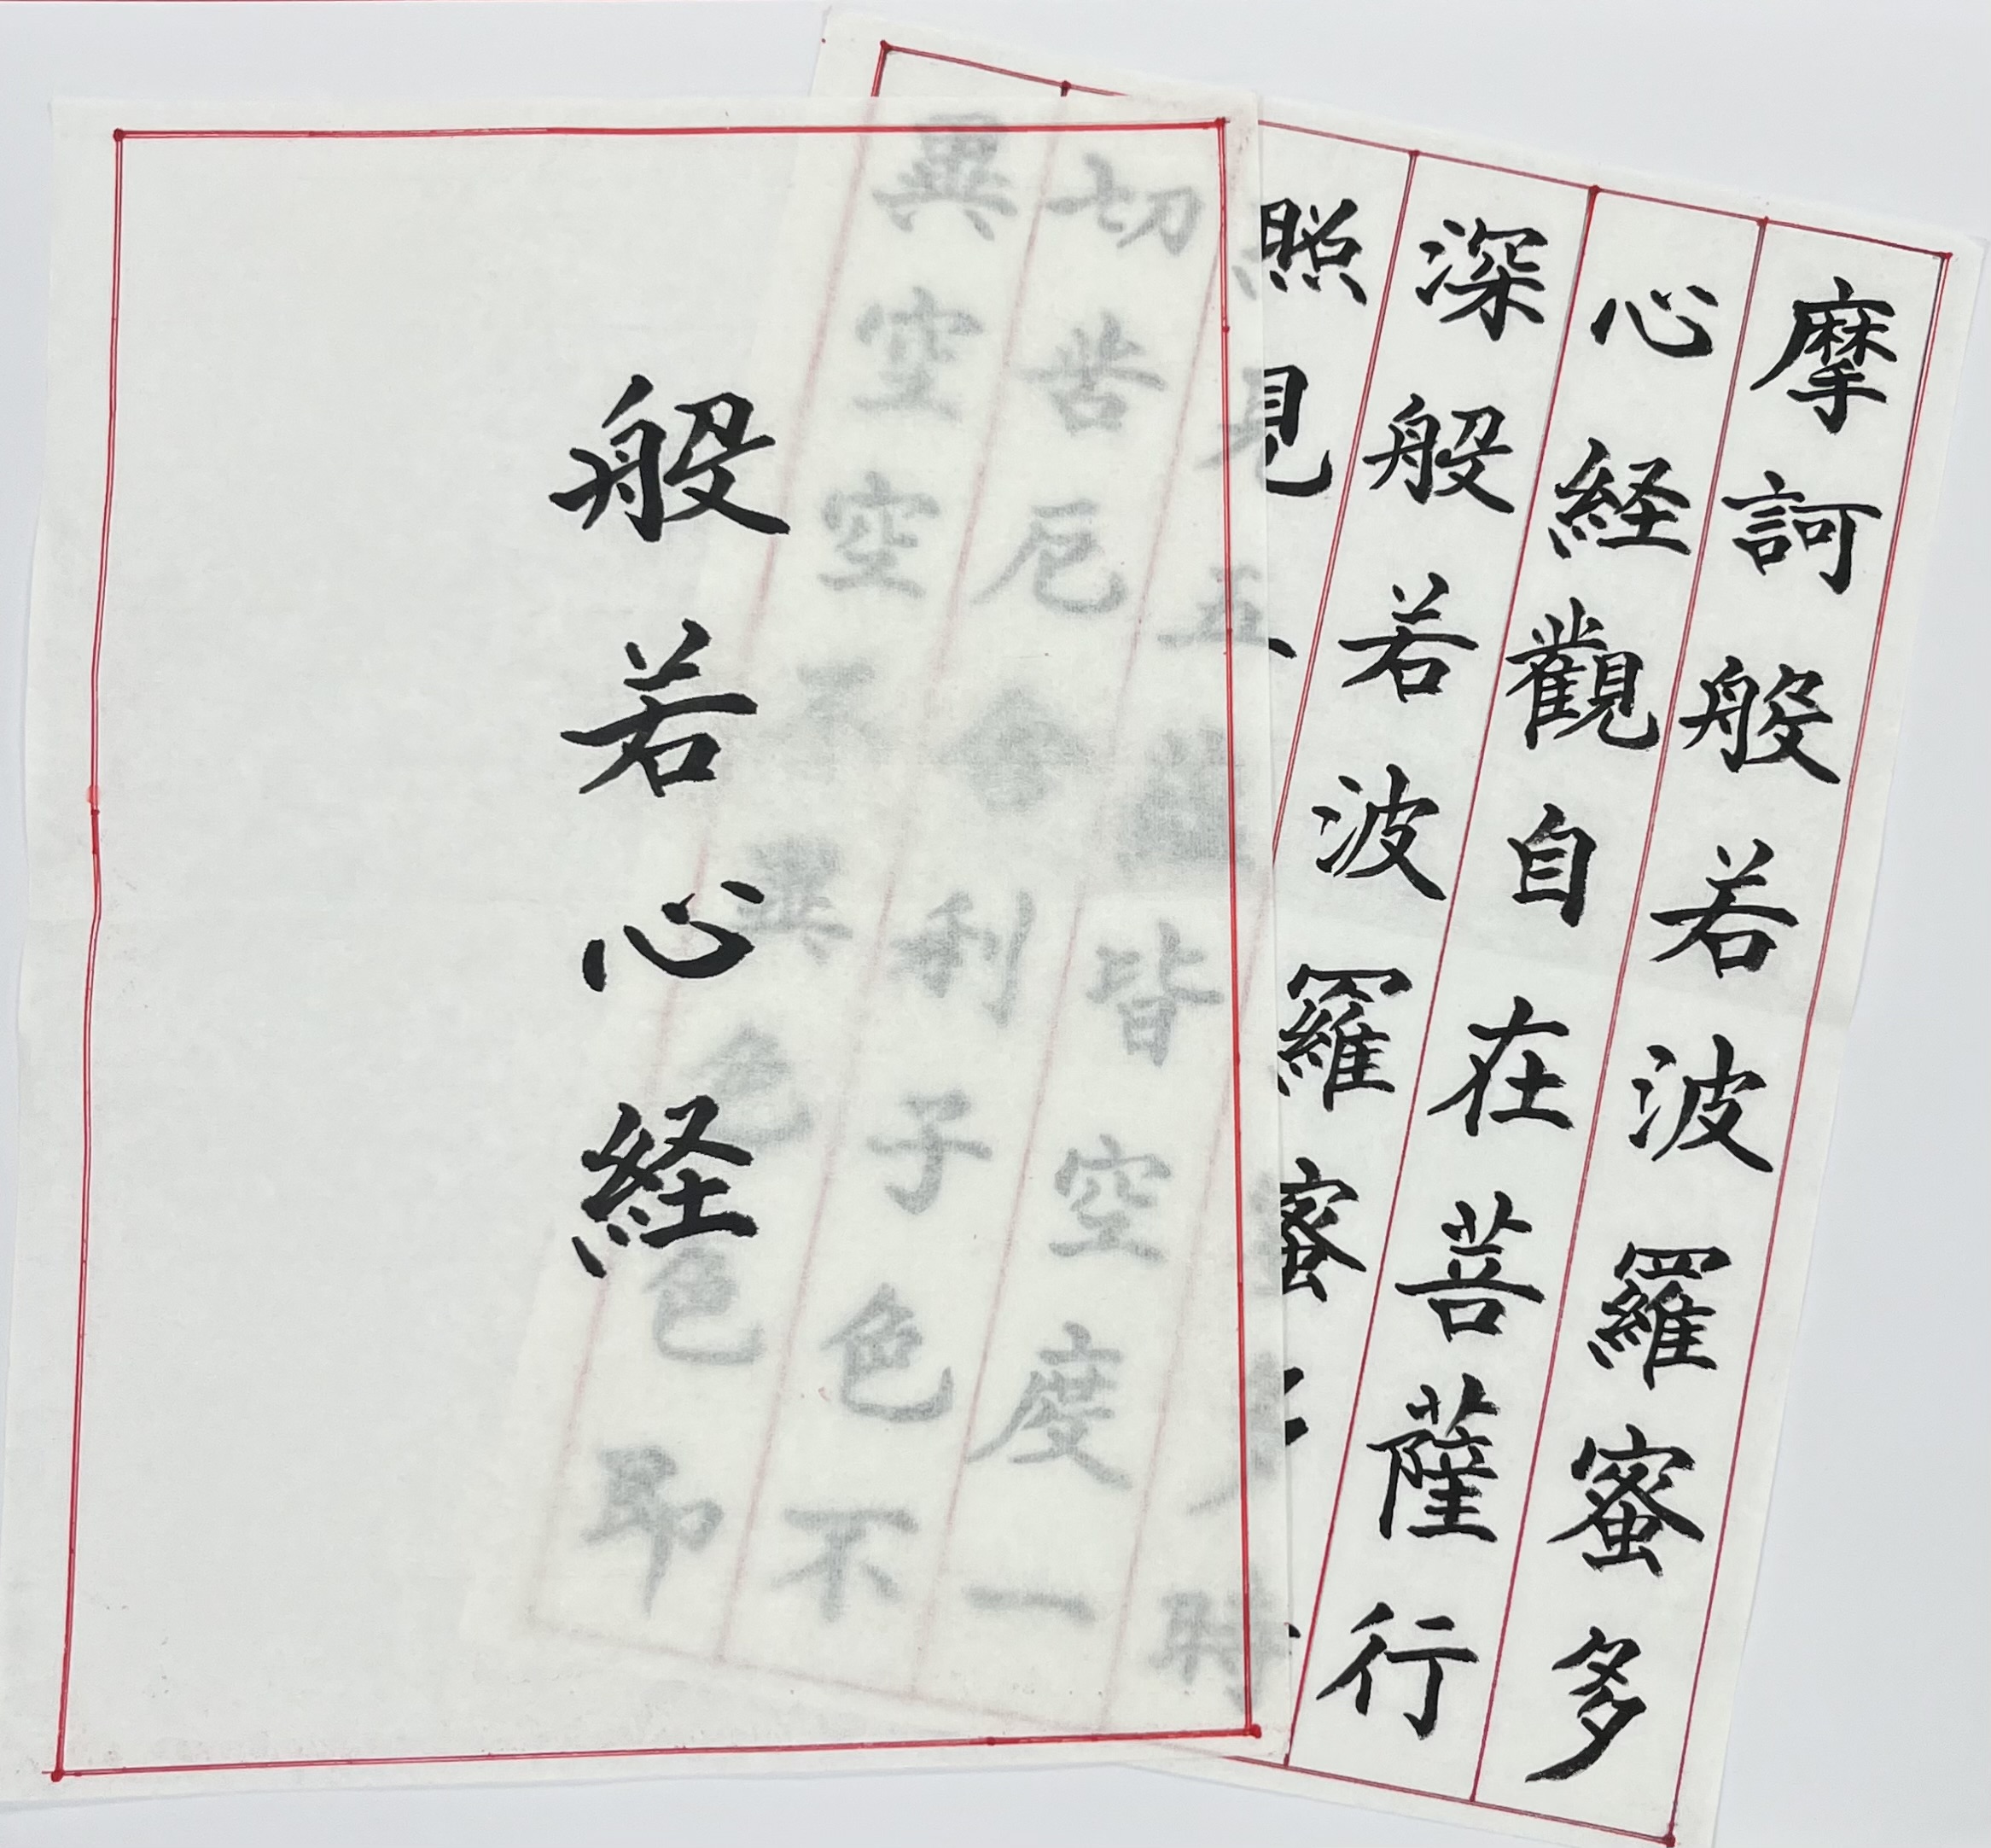 般若心経
摩訶般若波羅蜜多
心経觀自在菩薩行
深般若波羅蜜多時
照見五蘊皆空度一
切苦厄舎利子色不
異空空不異色色即